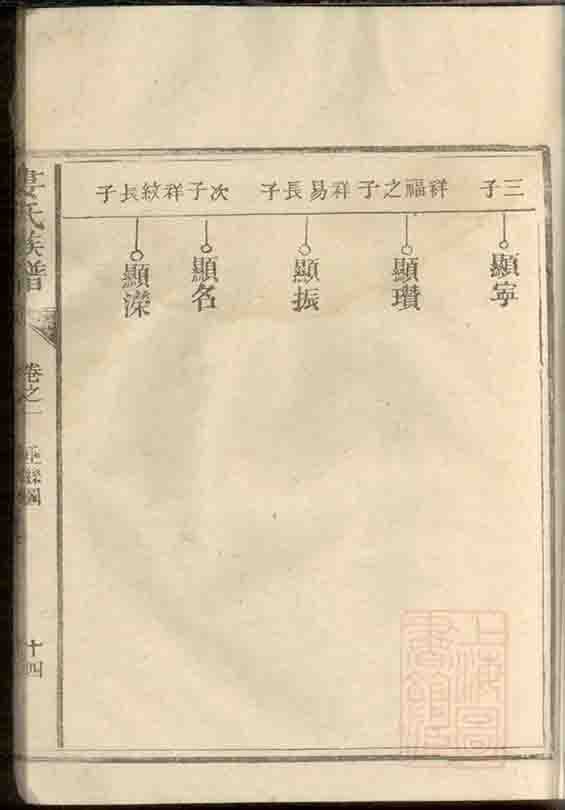 三子
顯寧
祥福之子
顯瓚
祥易長子
顯振
次子
顯名
祥紋長子
顯深
婁氏族譜
卷之一
十四
上海圖書館藏